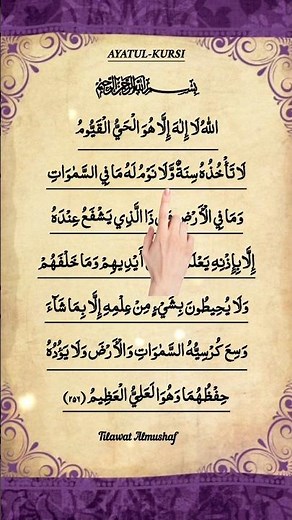 AYATUL-KURSI
بِسْمِ اللّٰهِ الرَّحْمٰنِ الرَّحِيْمِ
اللّٰهُ لَا إِلٰهَ إِلَّا هُوَ الْحَيُّ الْقَيُّومُ
لَا تَأْخُذُهُ سِنَةٌ وَّلَا نَوْمٌ لَهُ مَا فِي السَّمٰوَاتِ
وَمَا فِي الْأَرْضِ ذَا الَّذِي يَشْفَعُ عِنْدَهُ
إِلَّا بِإِذْنِهِ يَعْلَمُ أَيْدِيهِمْ وَمَا خَلْفَهُمْ
وَلَا يُحِيطُونَ بِشَيْءٍ مِنْ عِلْمِهِ إِلَّا بِمَا شَآءَ
وَسِعَ كُرْسِيُّهُ السَّمٰوَاتِ وَالْأَرْضَ وَلَا يَؤُدُهُ
حِفْظُهُمَا وَهُوَ الْعَلِيُّ الْعَظِيمُ (٢٥٦)
Tilawat Almushaf